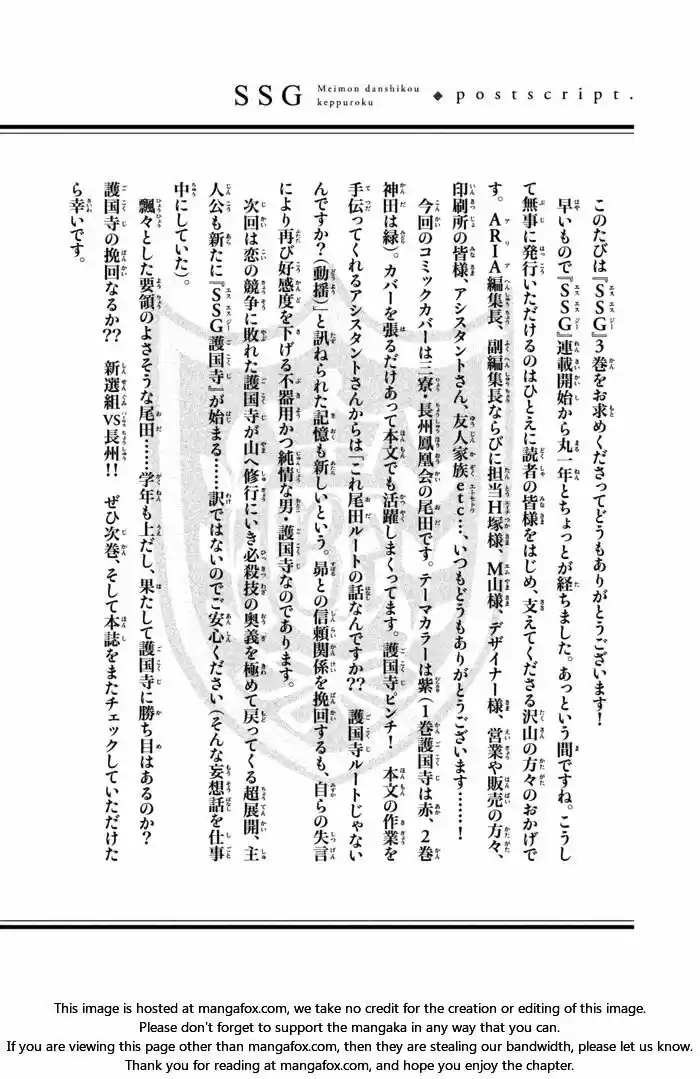 SSG Meimon danshikou
keppuroku ◆ postscript.
このたびは『SSG』3巻をお求めくださってどうもありがとうございます!
早いもので『SSG』連載開始から丸一年とちょっとが経ちました。あっという間ですね。こうし
て無事に発行いただけるのはひとえに読者の皆様をはじめ、支えてくださる沢山の方々のおかげで
す。ARIA編集長、副編集長ならびに担当H塚様、M山様、デザイナー様、営業や販売の方々、
印刷所の皆様、アシスタントさん、友人家族etc…、いつもどうもありがとうございます……!
今回のコミックカバーは三寮・長州鳳凰会の尾田です。テーマカラーは紫(1巻護国寺は赤、2巻
神田は緑)。カバーを張るだけあって本文でも活躍しまくってます。護国寺ピンチ! 本文の作業を
手伝ってくれるアシスタントさんからは「これ尾田ルートの話なんですか?? 護国寺ルートじゃない
んですか?(動揺)」と訊ねられた記憶も新しいという。昴との信頼関係を挽回するも、自らの失言
により再び好感度を下げる不器用かつ純情な男・護国寺なのであります。
次回は恋の競争に敗れた護国寺が山へ修行にいき必殺技の奥義を極めて戻ってくる超展開、主
人公も新たに『SSG護国寺』が始まる……訳ではないのでご安心ください(そんな妄想話を仕事
中にしていた)。
飄々とした要領のよさそうな尾田……学年も上だし、果たして護国寺に勝ち目はあるのか?
護国寺の挽回なるか?? 新選組vs長州!! ぜひ次巻、そして本誌をまたチェックしていただけた
ら幸いです。
This image is hosted at mangafox.com, we take no credit for the creation or editing of this image.
Please don't forget to support the mangaka in any way that you can.
If you are viewing this page other than mangafox.com, then they are stealing our bandwidth, please let us know.
Thank you for reading at mangafox.com, and hope you enjoy the chapter.